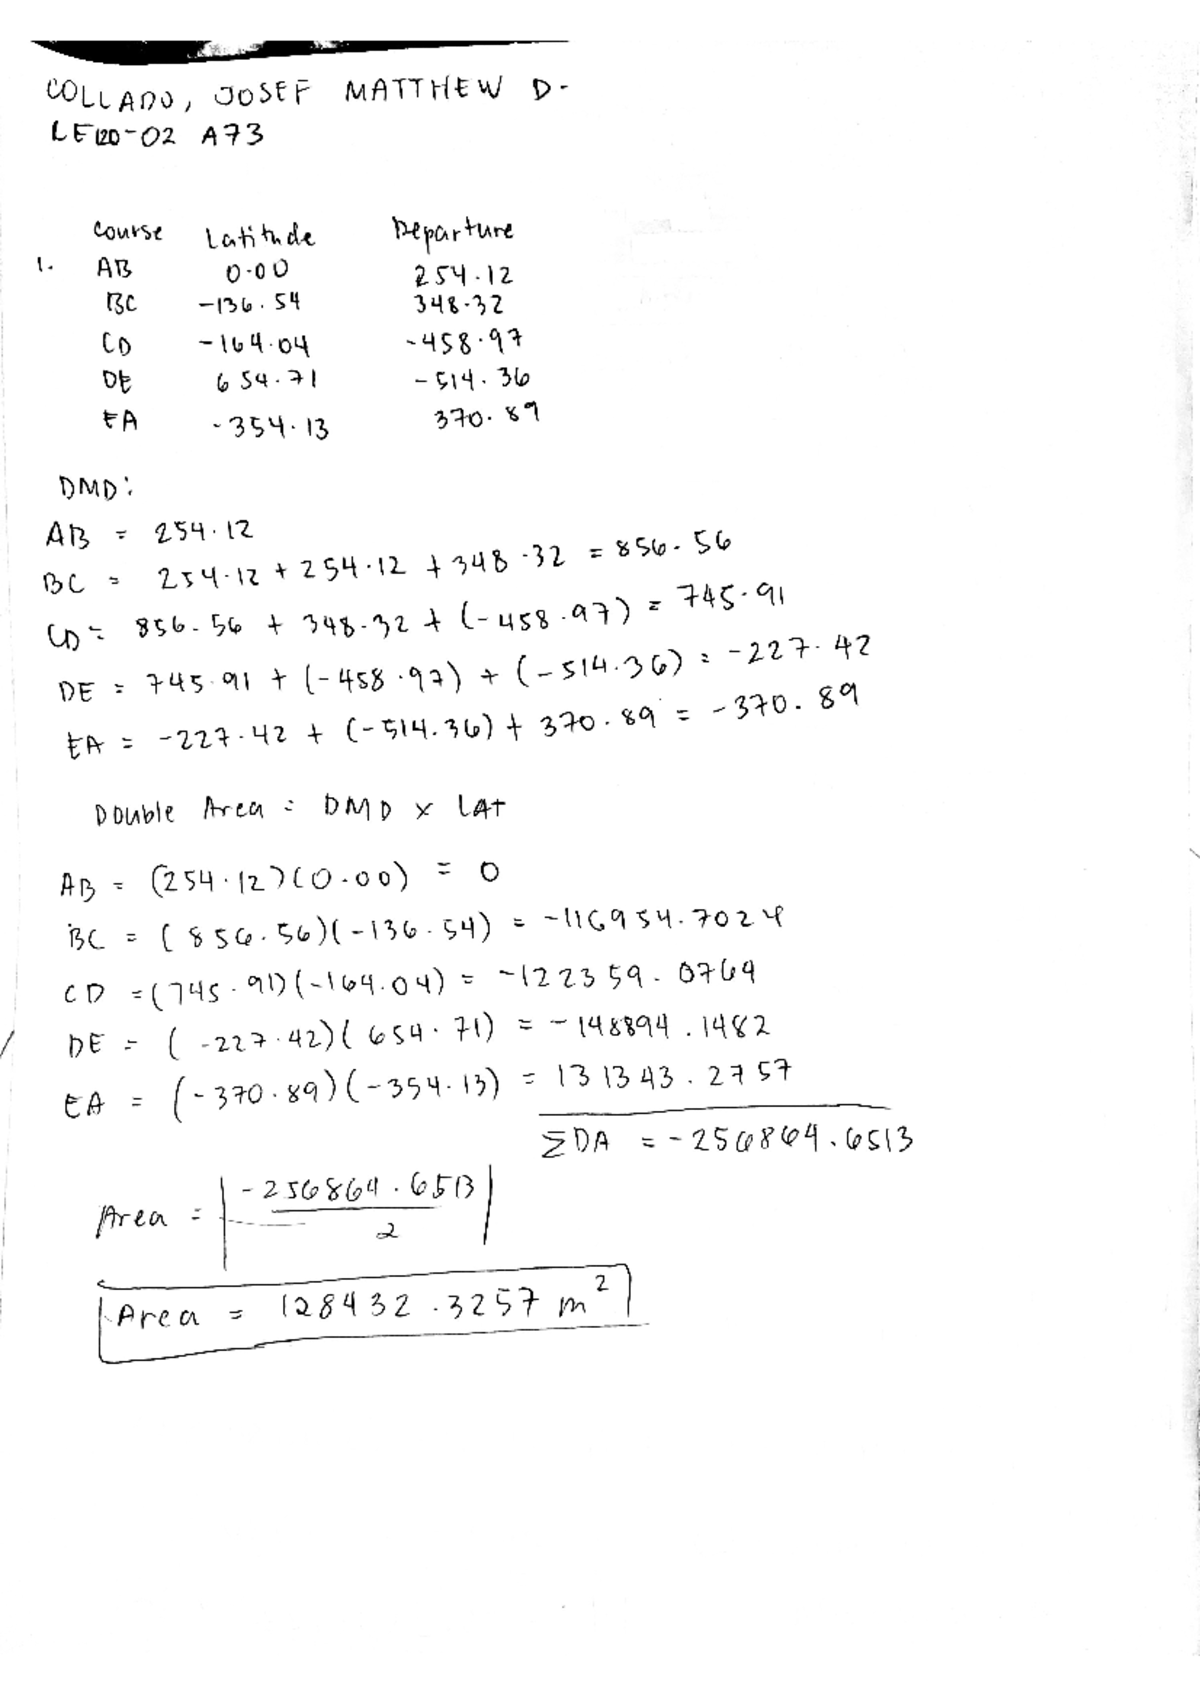 COLLADO, JOSEF MATTHEW D.
CE120-02 A73
Course Latitude Departure
1. AB 0.00 254.12
BC -136.54 348.32
CD -164.04 -458.97
DE 654.71 -514.36
EA -354.13 370.89
DMD:
AB = 254.12
BC = 254.12 + 254.12 + 348.32 = 856.56
CD = 856.56 + 348.32 + (-458.97) = 745.91
DE = 745.91 + (-458.97) + (-514.36) = -227.42
EA = -227.42 + (-514.36) + 370.89 = -370.89
Double Area = DMD x LAT
AB = (254.12)(0.00) = 0
BC = (856.56)(-136.54) = -116954.7024
CD = (745.91)(-164.04) = -122359.0764
DE = (-227.42)(654.71) = -148894.1482
EA = (-370.89)(-354.13) = 131343.2757
ΣDA = -256864.6513
Area = |-256864.6513
2|
Area = 128432.3257 m²